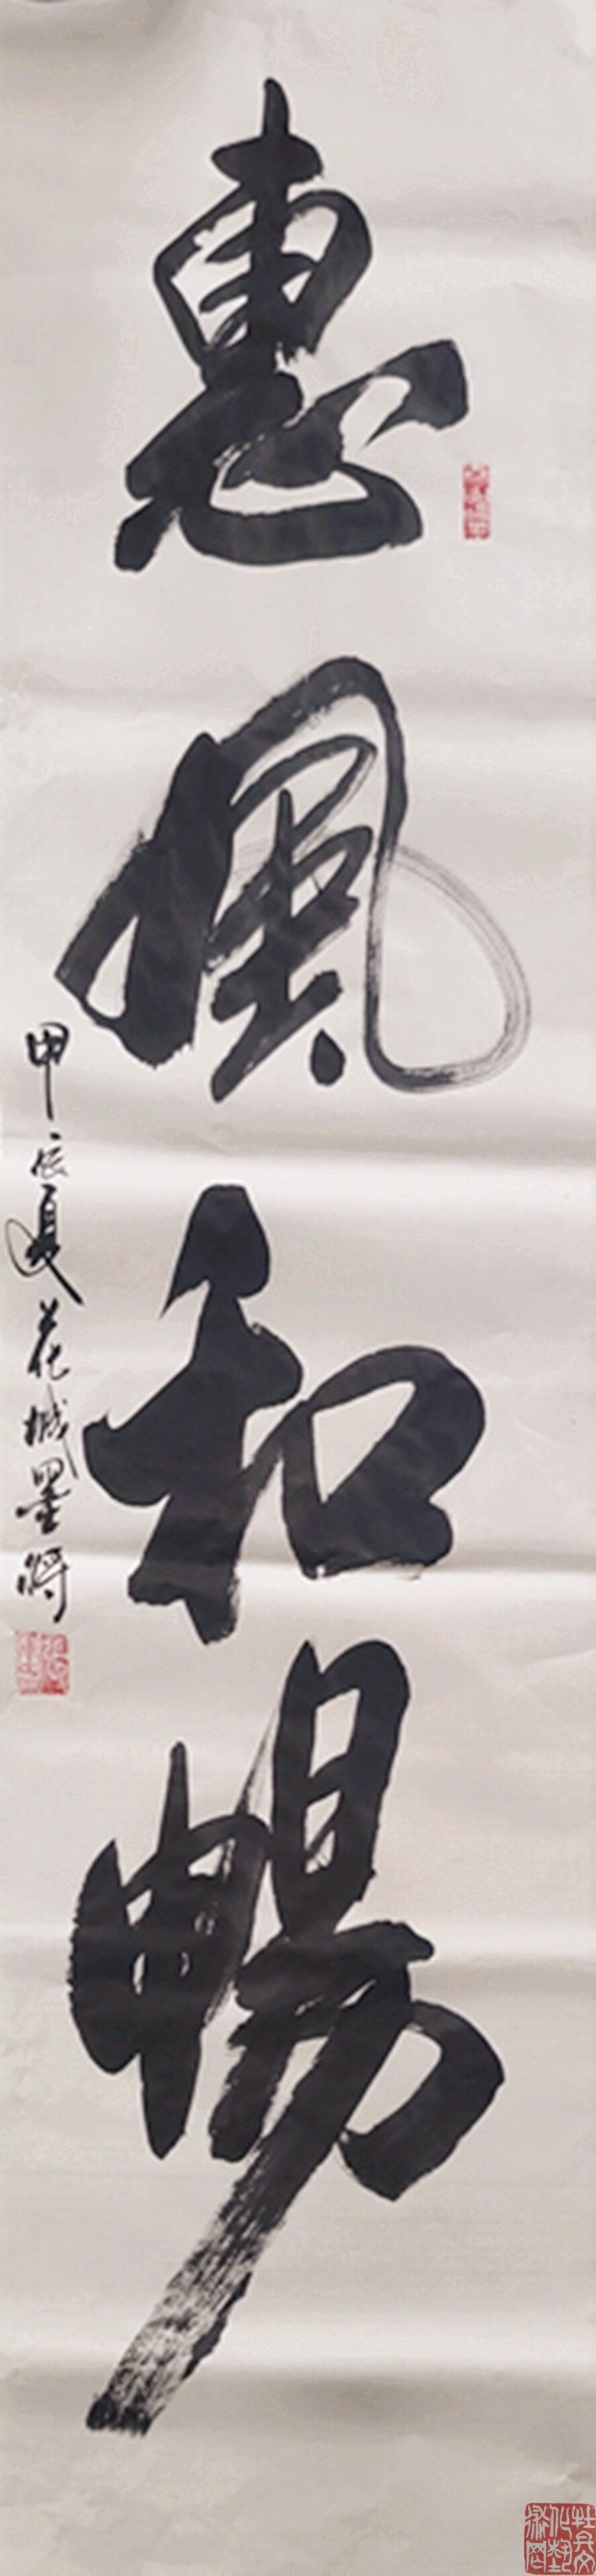 惠風和暢
甲辰夏花城墨將